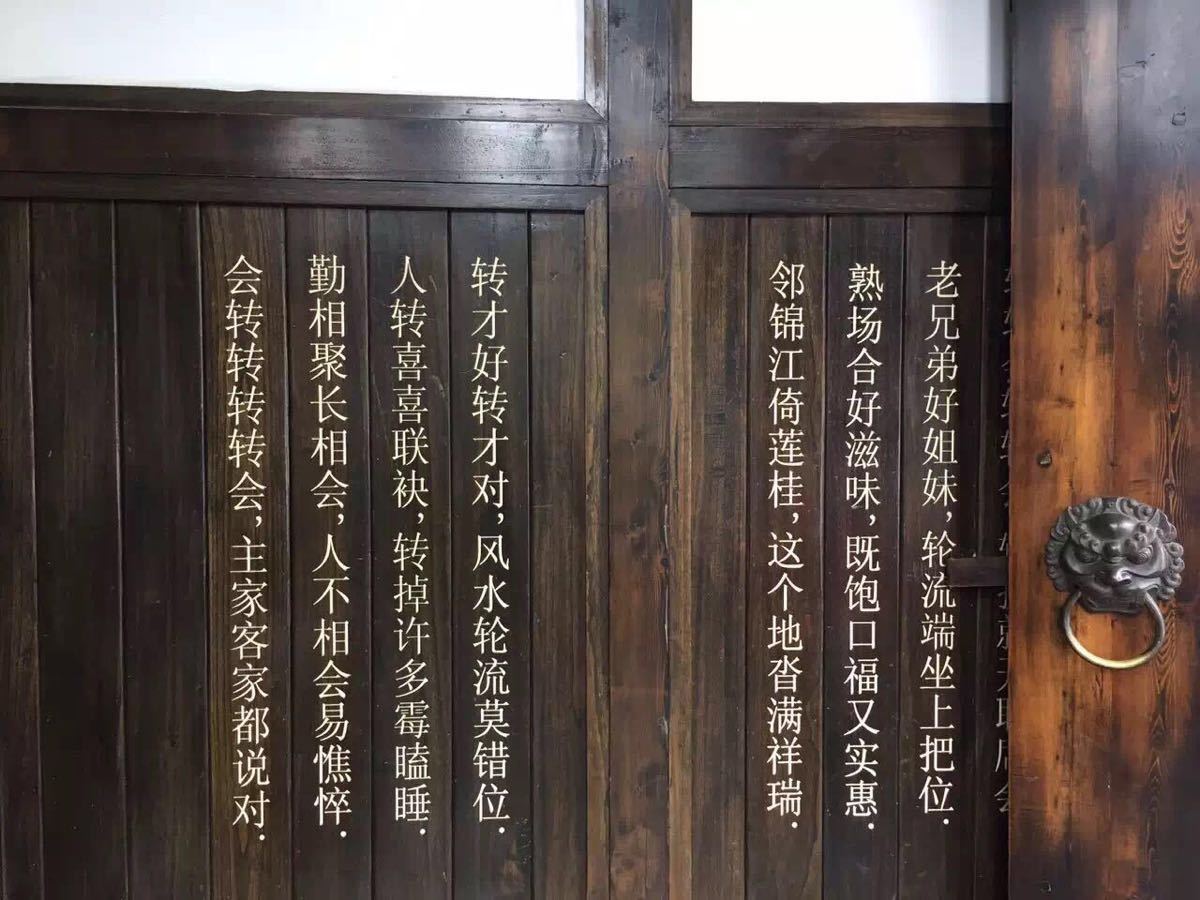 老兄弟好姐妹，轮流端坐上把位．
熟场合好滋味，既饱口福又实惠．
邻锦江倚莲桂，这个地沓满祥瑞．
转才好转才对，风水轮流莫错位．
人转喜喜联袂，转掉许多霉瞌睡．
勤相聚长相会，人不相会易憔悴．
会转转转转会，主家客家都说对．